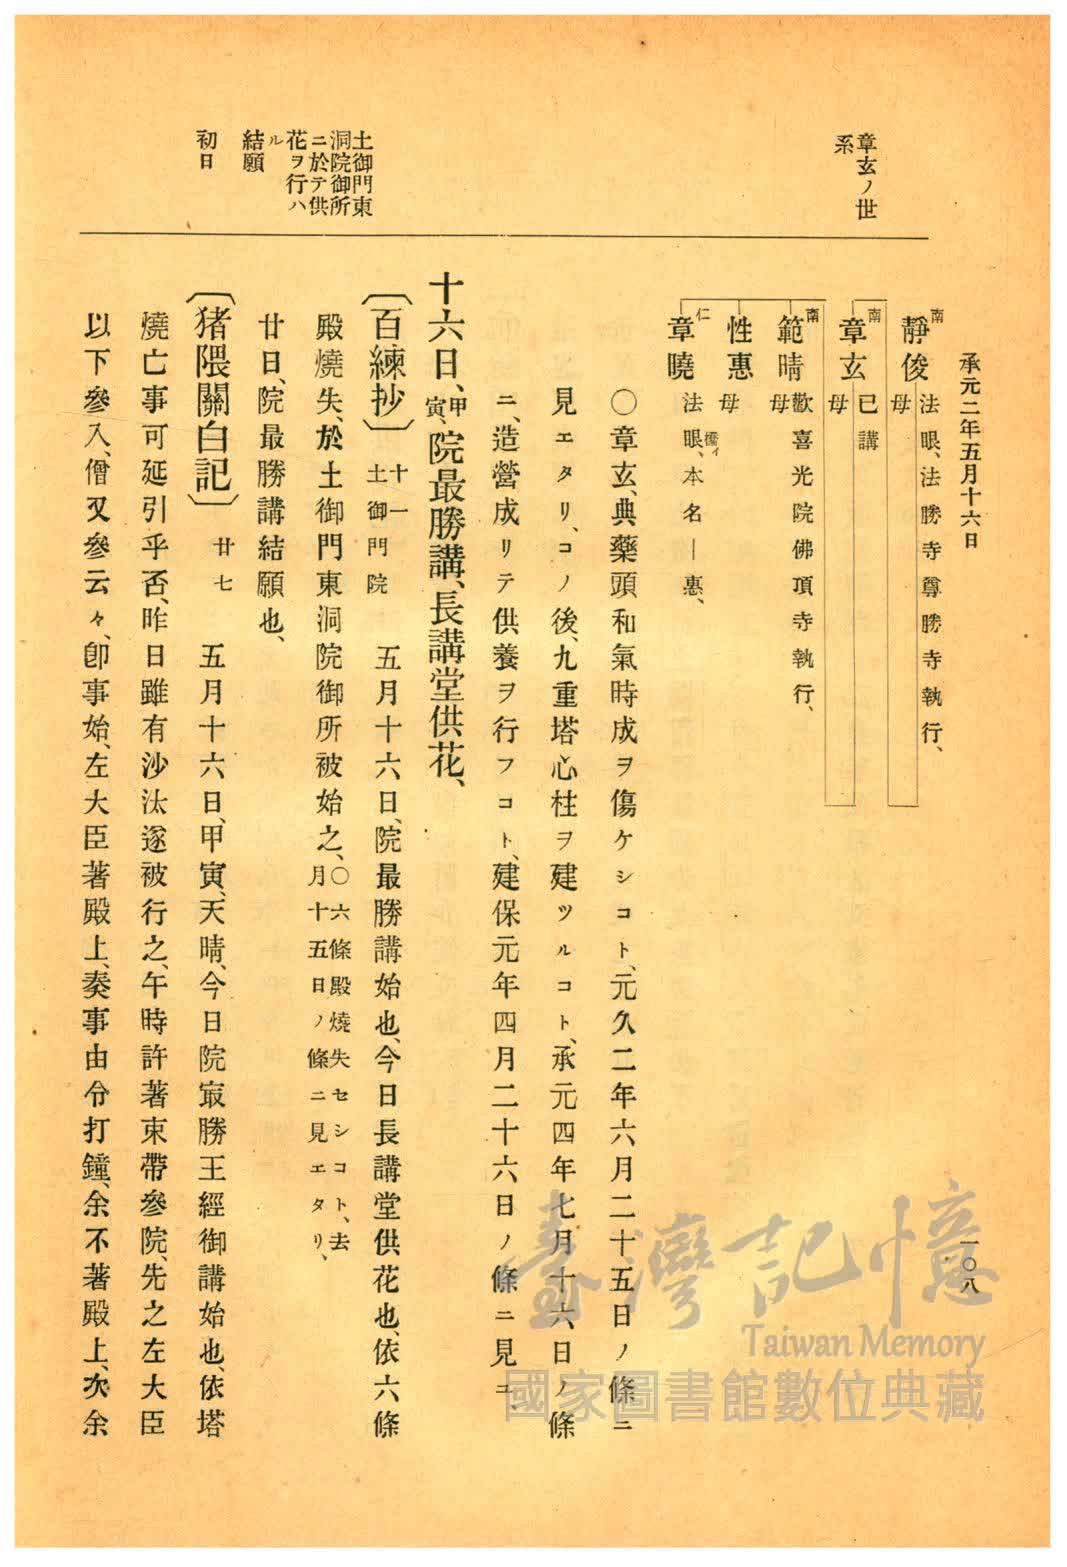 承元二年五月十六日
一〇八
章玄ノ世
系
南
靜俊
法眼、法勝寺尊勝寺執行、
母
南
章玄
已講
母
南
範晴
歡喜光院佛頂寺執行、
母
性惠
母
仁
章曉
法眼、本名—惠、
儒イ
〇章玄、典藥頭和氣時成ヲ傷ケシコト、元久二年六月二十五日ノ條ニ
見エタリ、コノ後、九重塔心柱ヲ建ツルコト、承元四年七月十六日ノ條
ニ、造營成リテ供養ヲ行フコト、建保元年四月二十六日ノ條ニ見ユ、
十六日、甲寅、院最勝講、長講堂供花、
土御門東
洞院御所
ニ於テ供
花ヲ行ハ
ル
結願
初日
〔百練抄〕十一 土御門院 五月十六日、院最勝講始也、今日長講堂供花也、依六條
殿燒失、於土御門東洞院御所被始之、〇六條殿燒失セシコト、去月十五日ノ條ニ見エタリ、
廿日、院最勝講結願也、
〔猪隈關白記〕廿七 五月十六日、甲寅、天晴、今日院冣勝王經御講始也、依塔
燒亡事可延引乎否、昨日雖有沙汰遂被行之、午時許著束帶參院、先之左大臣
以下參入、僧又參云々、卽事始、左大臣著殿上、奏事由令打鐘、余不著殿上、次余
臺灣記憶
Taiwan Memory
國家圖書館數位典藏